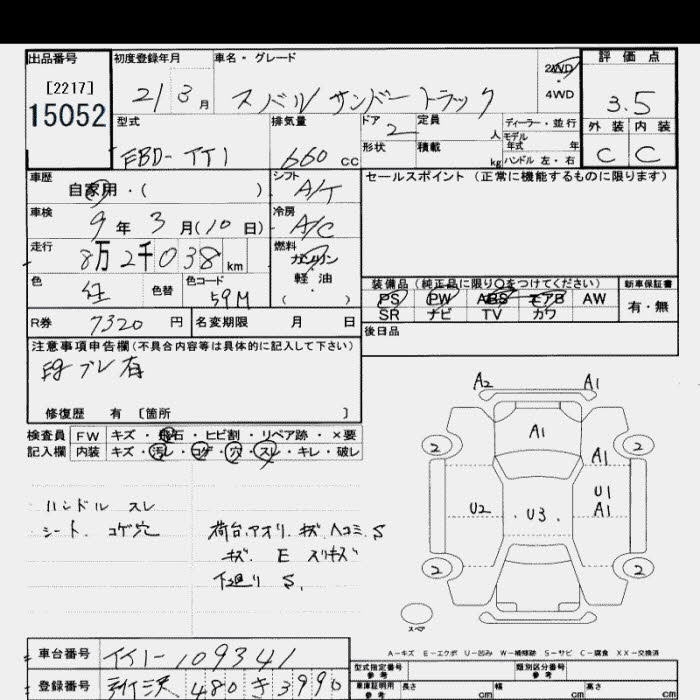 出品番号
[2217]
15052
初度登録年月
21 3 月
車名・グレード
スバル サンバートラック
2WD
4WD
評価点
3.5
外装 内装
C C
型式
EBD-TT1
排気量
660 cc
ドア 2
定員 人
形状
積載 kg
ディーラー・並行
モデル年式 年
ハンドル 左・右
車歴
自家用・( )
シフト
A/T
車検
9年 3月(10日)
冷房
A/C
走行
8万2千038 km
燃料
ガソリン
軽油
( )
色
紅
色替
色コード
59M
R券 7320 円
名変期限 月 日
セールスポイント (正常に機能するものに限ります)
装備品 (純正品に限り○をつけてください)
PS PW ABS エアB AW
SR ナビ TV カワ
新車保証書
有・無
後日品
注意事項申告欄(不具合内容等は具体的に記入して下さい)
ブレ 有
修復歴 有 [箇所 ]
検査員 FW キズ・飛石・ヒビ割・リペア跡・×要
記入欄 内装 キズ・汚レ・コゲ・穴・スレ・キレ・破レ
ハンドル スレ
シート コゲ穴
荷台.アオリ.キズ ヘコミ.S
キズ. E スリキズ
下廻り S.
A2 A1
A1
2 2
A1
U1
A1
U2
U3
2 2
スペア
A-キズ E-エクボ U-凹み W-補修跡 S-サビ C-腐食 XX-交換済
車台番号 TT1-109341
登録番号 480 き 3990
型式指定番号
参考
類別区分番号
参考
車庫証明用
参考
長さ cm
幅 cm
高さ cm